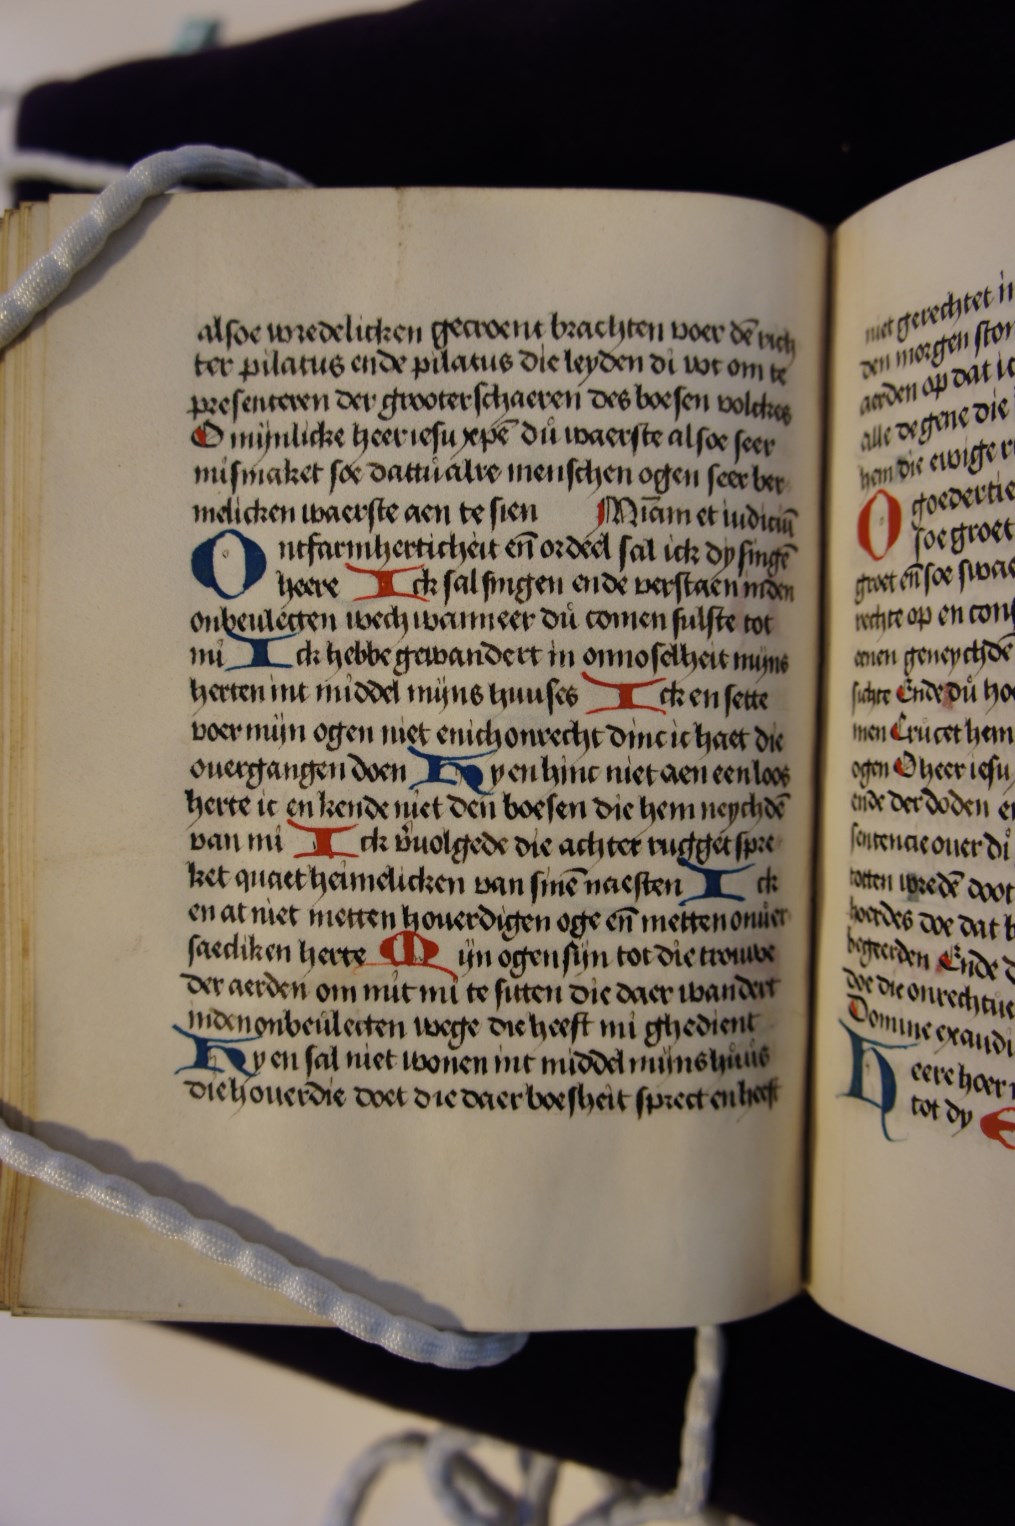 alsoe wredelicken gecroent brachten voer dē rich
ter pilatus ende pilatus die leyden di wt om te
presenteren der grooter schaeren des boesen volckes
O mijnlicke heer iesu xpē dů waerste alsoe seer
mismaket soe dattů alre menschen ogen seer ber
melicken waerste aen te sien Miām et iudiciū
Ontfarmherticheit eñ ordeel sal ick dy singē
heere Ick sal singen ende verstaen inden
onbeulecten wech wanneer dů comen sulste tot
mi Ick hebbe gewandert in onnoselheit mijns
herten int middel mijns huuses Ick en sette
voer mijn ogen niet enich onrecht dinc ic haet die
ouergangen doen Hy en hinc niet aen een loos
herte ic en kende niet den boesen die hem neychdē
van mi Ick vuolgede die achter rugget spre
ket quaet heimelicken van sinē naesten Ick
en at niet metten houerdigen oge eñ metten onuer
saediken herte Mijn ogen sijn tot die trouwe
der aerden om mit mi te sitten die daer wandert
inden onbeulecten wege die heeft mi ghedient
Hy en sal niet wonen int middel mijns huůs
die houerdie doet die daer boesheit sprect en heeft
niet gerechtet in
den morgen
aerden op dat ic
alle de gene die
hem die ewige
O goedertie
soe groet
groet eñ soe swae
rechte op en
enen geneychdē
sichte Ende dů
men Crucet hem
ogen O heer iesu
ende der doden
sentencie ouer di
totten wredē doot
hoerdes doe dat
begeerden Ende
doe die onrechtue
Domine exaudi
Heere hoer
tot dy